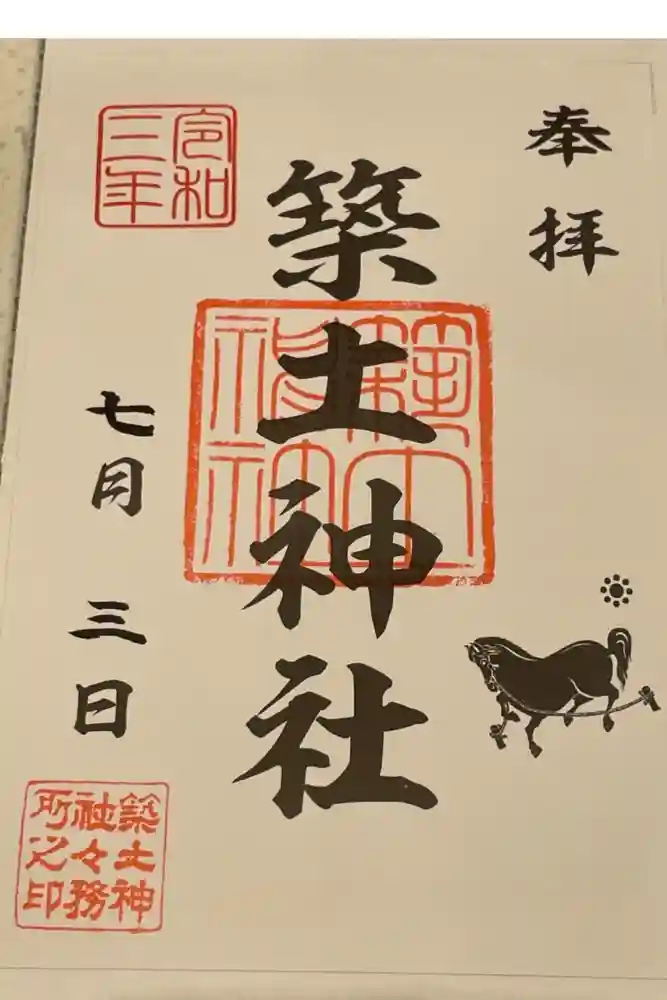 奉拝
築土神社
築土神社
令和
三年
七月三日
築土神
社々務
所之印